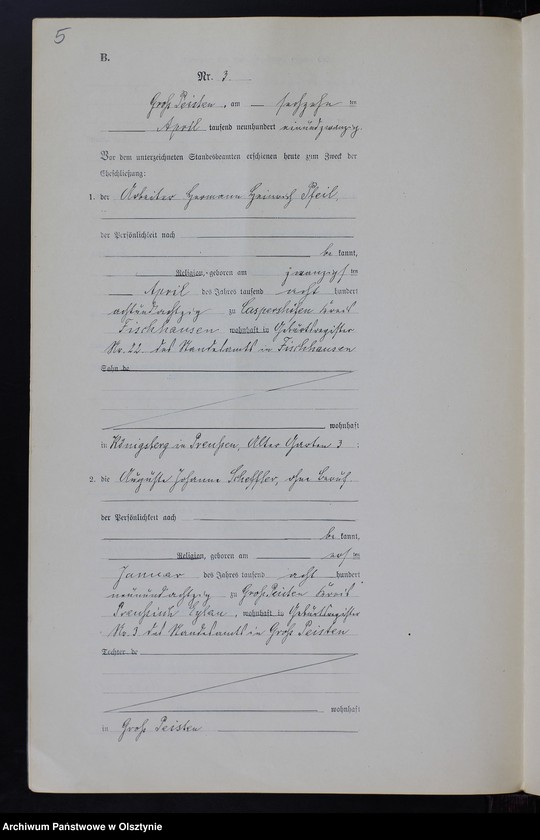 5
B.
Nr. 3.
Groß Peisten, am — sechzehn ten
April tausend neunhundert einundzwanzig.
Vor dem unterzeichneten Standesbeamten erschienen heute zum Zweck der
Eheschließung:
1. der Arbeiter Hermann Heinrich Pfeil,
der Persönlichkeit nach
be kannt,
Religion, geboren am zwanzigsten
April des Jahres tausend acht hundert
achtundachtzig zu Caspershöfen Kreis
Fischhausen wohnhaft in Geburtsregister
Nr. 22 des Standesamts in Fischhausen
Sohn de
wohnhaft
in Königsberg in Preußen, Alter Garten 3;
2. die Auguste Johanne Scheffler, ohne Beruf
der Persönlichkeit nach
be kannt,
Religion, geboren am ten
Januar des Jahres tausend acht hundert
neunundachtzig zu Groß Peisten Kreis
Preußisch Eylau, wohnhaft in Geburtsregister
Nr. 3 des Standesamts in Groß Peisten
Tochter de
wohnhaft
in Groß Peisten
Archiwum Państwowe w Olsztynie